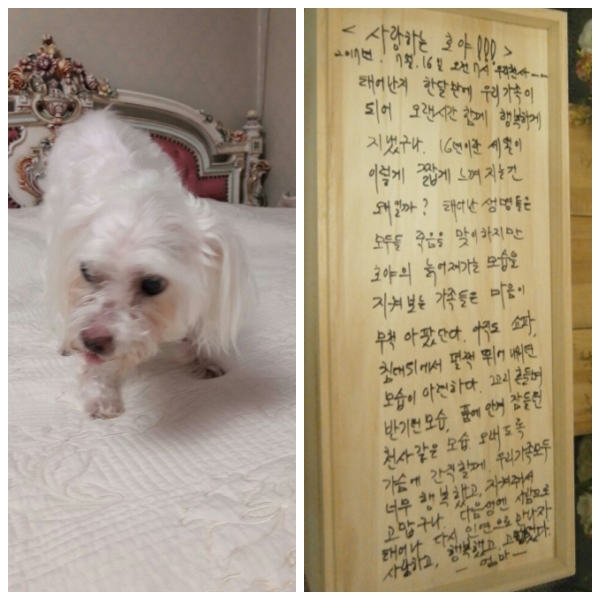 < 사랑하는 호야!!! >
2017년. 7월. 16일 오전 7시 우리천사
태어난지 한달만에 우리가족이
되어 오랜시간 함께 행복하게
지냈구나. 16년이란 세월이
이렇게 짧게 느껴지는건
왜일까? 태어난 생명들은
모두들 죽음을 맞이하지만
호야의 늙어져가는 모습을
지켜보는 가족들은 마음이
무척 아팠단다. 아직도 쇼파,
침대위에서 펄쩍 뛰어 내리던
모습이 아련하다. 꼬리 흔들며
반기던 모습, 품에 안겨 잠들던
천사같은 모습 오래도록
가슴에 간직할께. 우리가족모두
너무 행복했고, 지켜줘서
고맙구나. 다음생엔 사람으로
태어나 다시 인연으로 만나자
사랑하고, 행복했고, 고마웠다.
— 엄마 —